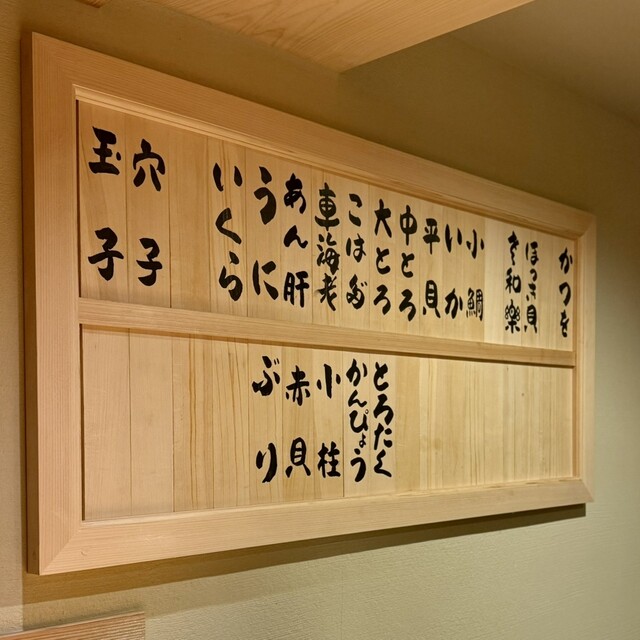 かつを
ほっき貝
き和樂
小鯛
いか
平貝
中とろ
大とろ
こはだ
車海老
あん肝
うに
いくら
穴子
玉子
とろたく
かんぴょう
小柱
赤貝
ぶり